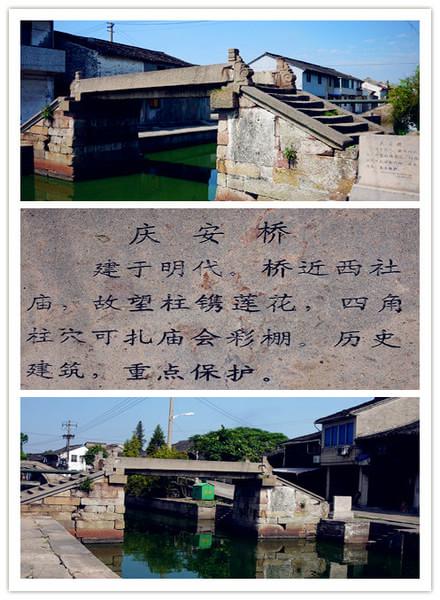 庆安桥
建于明代。桥近西社
庙，故望柱镌莲花，四角
柱穴可扎庙会彩棚。历史
建筑，重点保护。